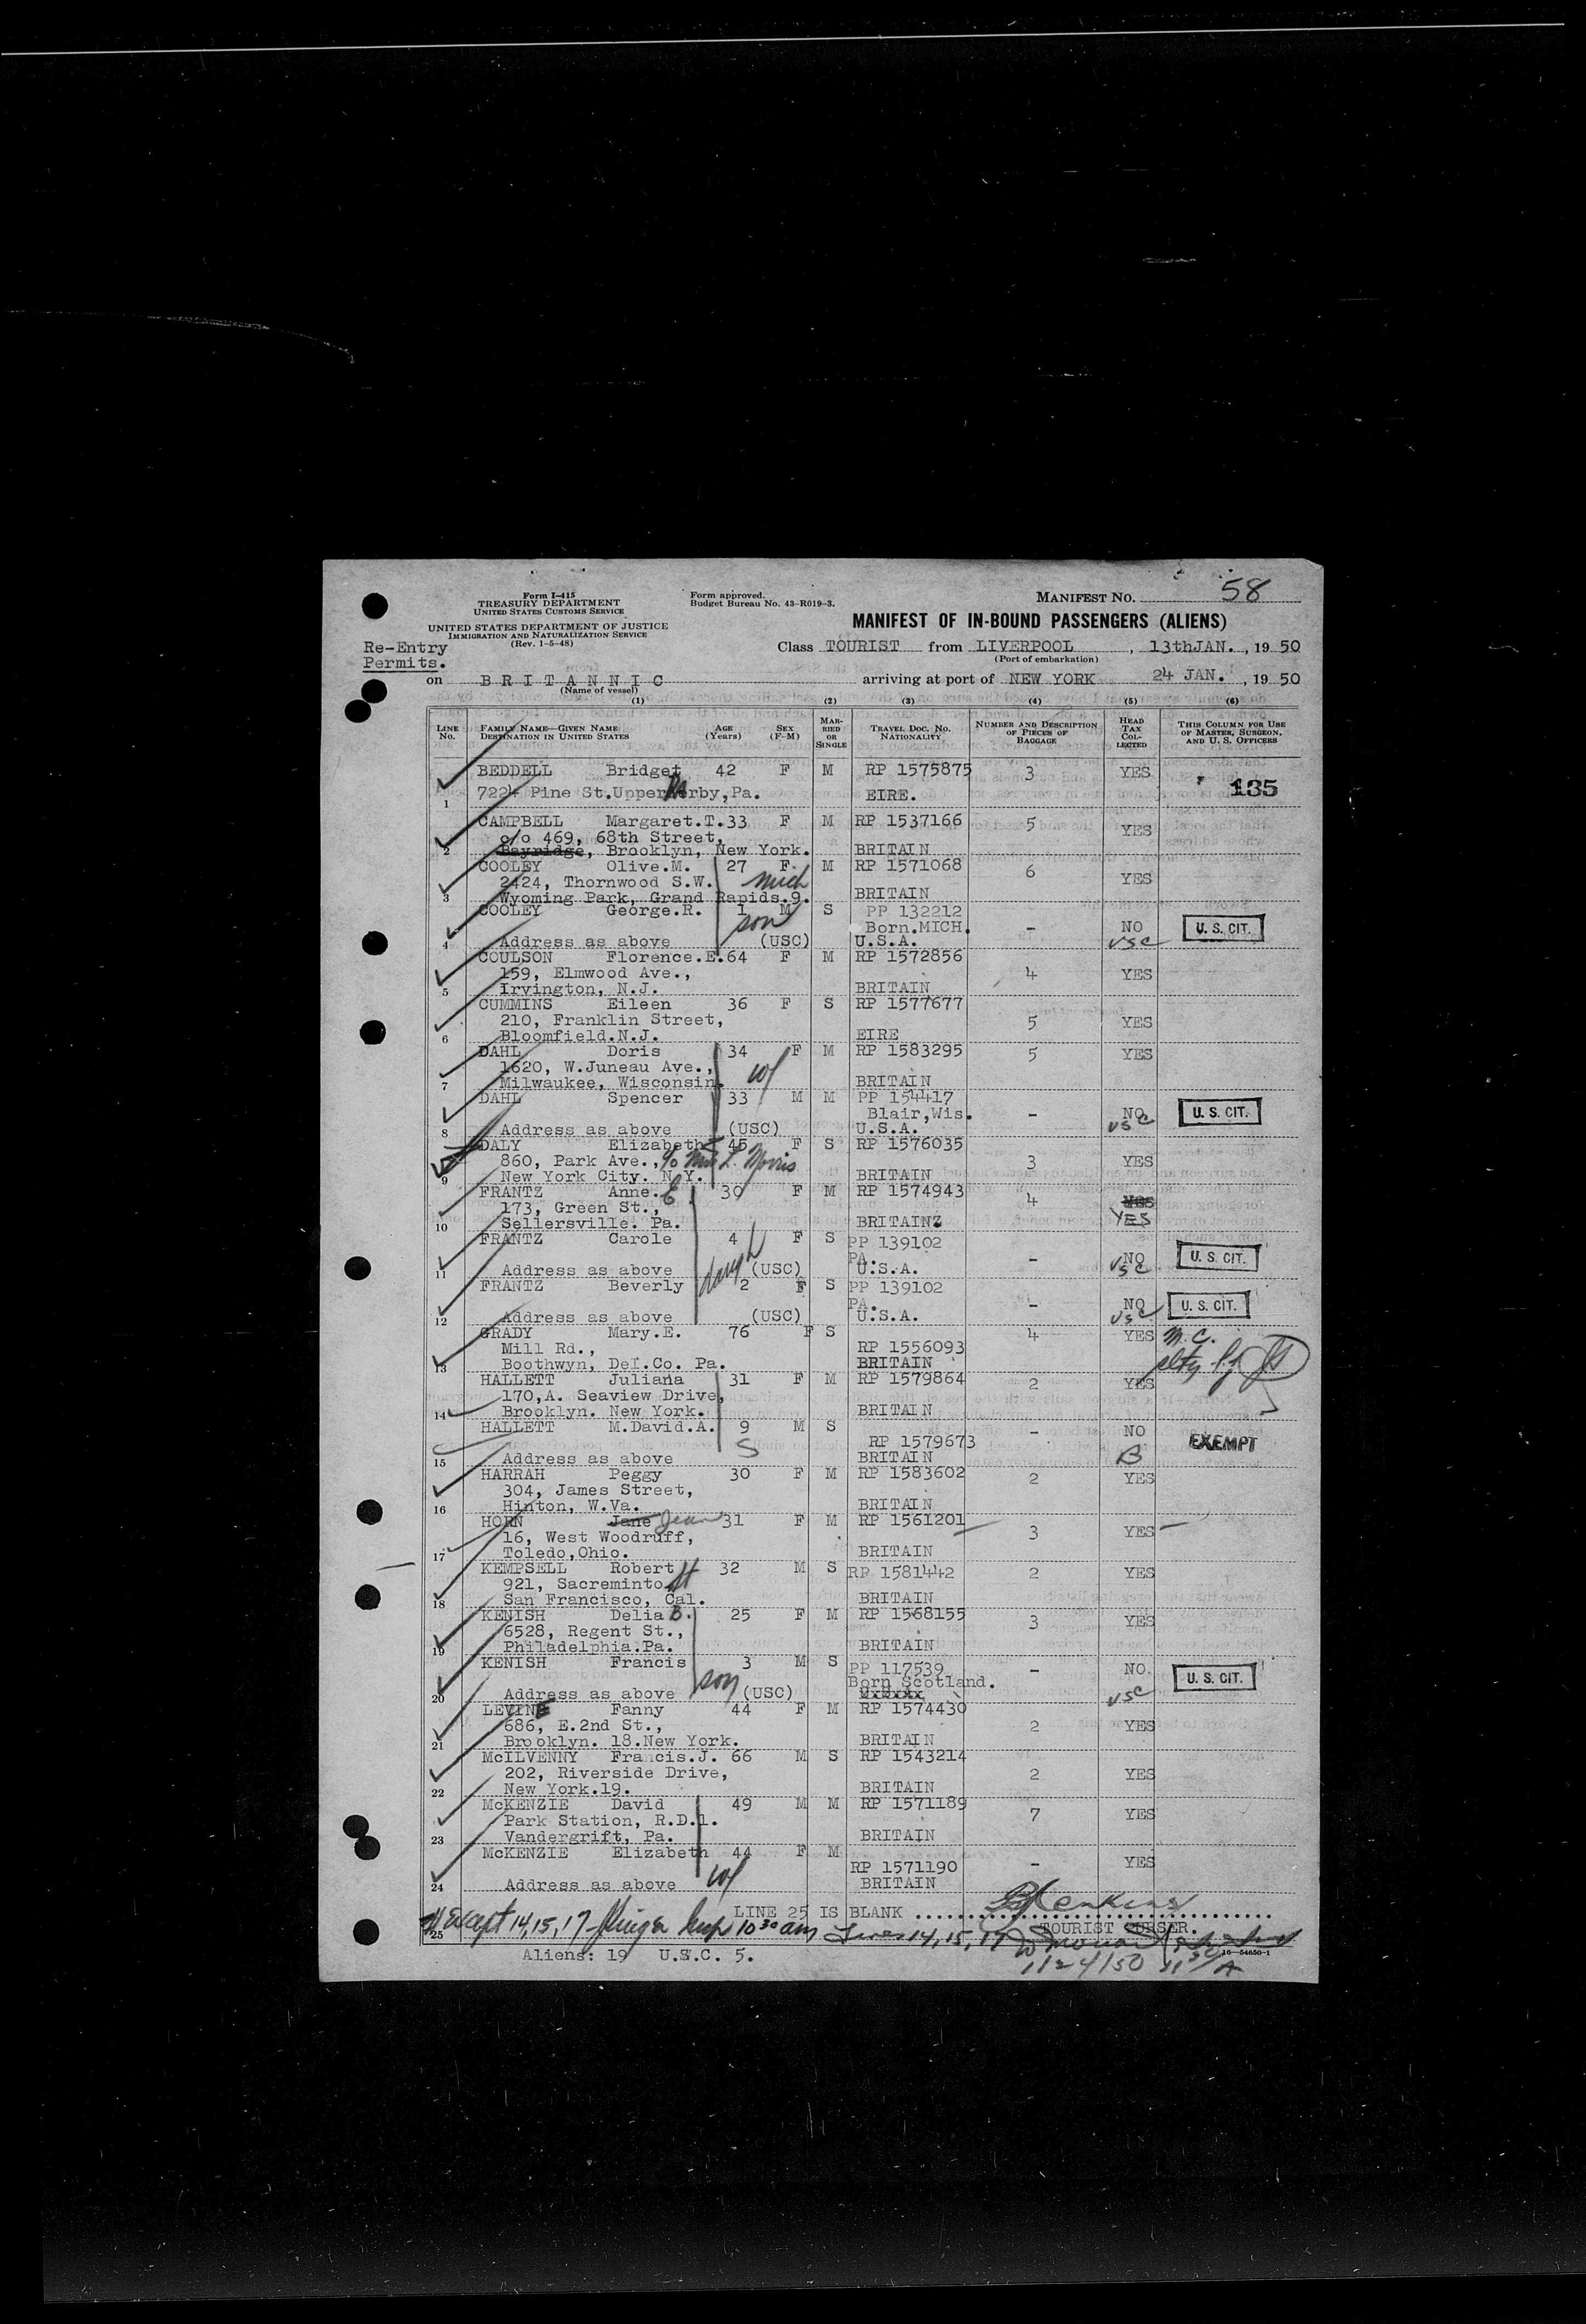 Form I-415
TREASURY DEPARTMENT
UNITED STATES CUSTOMS SERVICE
UNITED STATES DEPARTMENT OF JUSTICE
IMMIGRATION AND NATURALIZATION SERVICE
(Rev. 1-5-48)
Form approved.
Budget Bureau No. 43-R019-3.
MANIFEST NO. 58
MANIFEST OF IN-BOUND PASSENGERS (ALIENS)
Re-Entry
Permits.
Class TOURIST from LIVERPOOL, 13thJAN., 1950
(Port of embarkation)
on BRITANNIC arriving at port of NEW YORK 24 JAN., 1950
(Name of vessel)
(1) (2) (3) (4) (5) (6)
LINE No. FAMILY NAME—GIVEN NAME DESTINATION IN UNITED STATES AGE (Years) SEX (F-M) MARRIED OR SINGLE TRAVEL DOC. NO. NATIONALITY NUMBER AND DESCRIPTION OF PIECES OF BAGGAGE HEAD TAX COLLECTED THIS COLUMN FOR USE OF MASTER, SURGEON, AND U. S. OFFICERS
BEDDELL Bridget 42 F M RP 1575875 3 YES 135
1 7224 Pine St.Upper Derby,Pa. EIRE.
CAMPBELL Margaret.T. 33 F M RP 1537166 5 YES
c/o 469, 68th Street,
2 Bayridge, Brooklyn, New York. BRITAIN
COOLEY Olive.M. 27 F. M RP 1571068 6 YES
2424, Thornwood S.W. Mich
3 Wyoming Park, Grand Rapids.9. BRITAIN
COOLEY George.R. 1 M S PP 132212
son Born.MICH. - NO U. S. CIT.
4 Address as above (USC) U.S.A. USC
COULSON Florence.E. 64 F M RP 1572856
159, Elmwood Ave., 4 YES
5 Irvington, N.J. BRITAIN
CUMMINS Eileen 36 F S RP 1577677
210, Franklin Street, 5 YES
6 Bloomfield.N.J. EIRE
DAHL Doris 34 F M RP 1583295 5 YES
1620, W.Juneau Ave., wf
7 Milwaukee, Wisconsin. BRITAIN
DAHL Spencer 33 M M PP 154417
Blair,Wis. - NO U. S. CIT.
8 Address as above (USC) U.S.A. USC
DALY Elizabeth 45 F S RP 1576035
860, Park Ave., c/o Mrs L. Morris 3 YES
9 New York City. N.Y. BRITAIN
FRANTZ Anne. E 30 F M RP 1574943 4 YES
173, Green St., YES
10 Sellersville. Pa. BRITAIN
FRANTZ Carole 4 F S PP 139102
daugh PA. - NO U. S. CIT.
11 Address as above (USC) U.S.A. USC
FRANTZ Beverly 2 F S PP 139102
PA. - NO U. S. CIT.
12 Address as above (USC) U.S.A. USC
GRADY Mary.E. 76 F S 4 YES M.C.
Mill Rd., RP 1556093
13 Boothwyn, Del.Co. Pa. BRITAIN
HALLETT Juliana 31 F M RP 1579864 2 YES
170,A. Seaview Drive,
14 Brooklyn. New York. BRITAIN
HALLETT M.David.A. 9 M S - NO
S RP 1579673 EXEMPT
15 Address as above BRITAIN B
HARRAH Peggy 30 F M RP 1583602 2 YES
304, James Street,
16 Hinton, W.Va. BRITAIN
HORN Jane Jean 31 F M RP 1561201
16, West Woodruff, 3 YES
17 Toledo,Ohio. BRITAIN
KEMPSELL Robert 32 M S RP 1581442 2 YES
921, Sacreminto St
18 San Francisco, Cal. BRITAIN
KENISH Delia B. 25 F M RP 1568155 3 YES
6528, Regent St.,
19 Philadelphia.Pa. BRITAIN
KENISH Francis 3 M S PP 117539 - NO.
son Born Scotland. U. S. CIT.
20 Address as above (USC) USC
LEVINE Fanny 44 F M RP 1574430
686, E.2nd St., 2 YES
21 Brooklyn. 18.New York. BRITAIN
McILVENNY Francis.J. 66 M S RP 1543214
202, Riverside Drive, 2 YES
22 New York.19. BRITAIN
McKENZIE David 49 M M RP 1571189
Park Station, R.D.1. 7 YES
23 Vandergrift, Pa. BRITAIN
McKENZIE Elizabeth 44 F M
wf RP 1571190 - YES
24 Address as above BRITAIN
LINE 25 IS BLANK
Except 14,15,17 10 30 am Lines 14,15,17
TOURIST PURSER.
25
Aliens: 19 U.S.C. 5. 1/24/50 16—54650-1